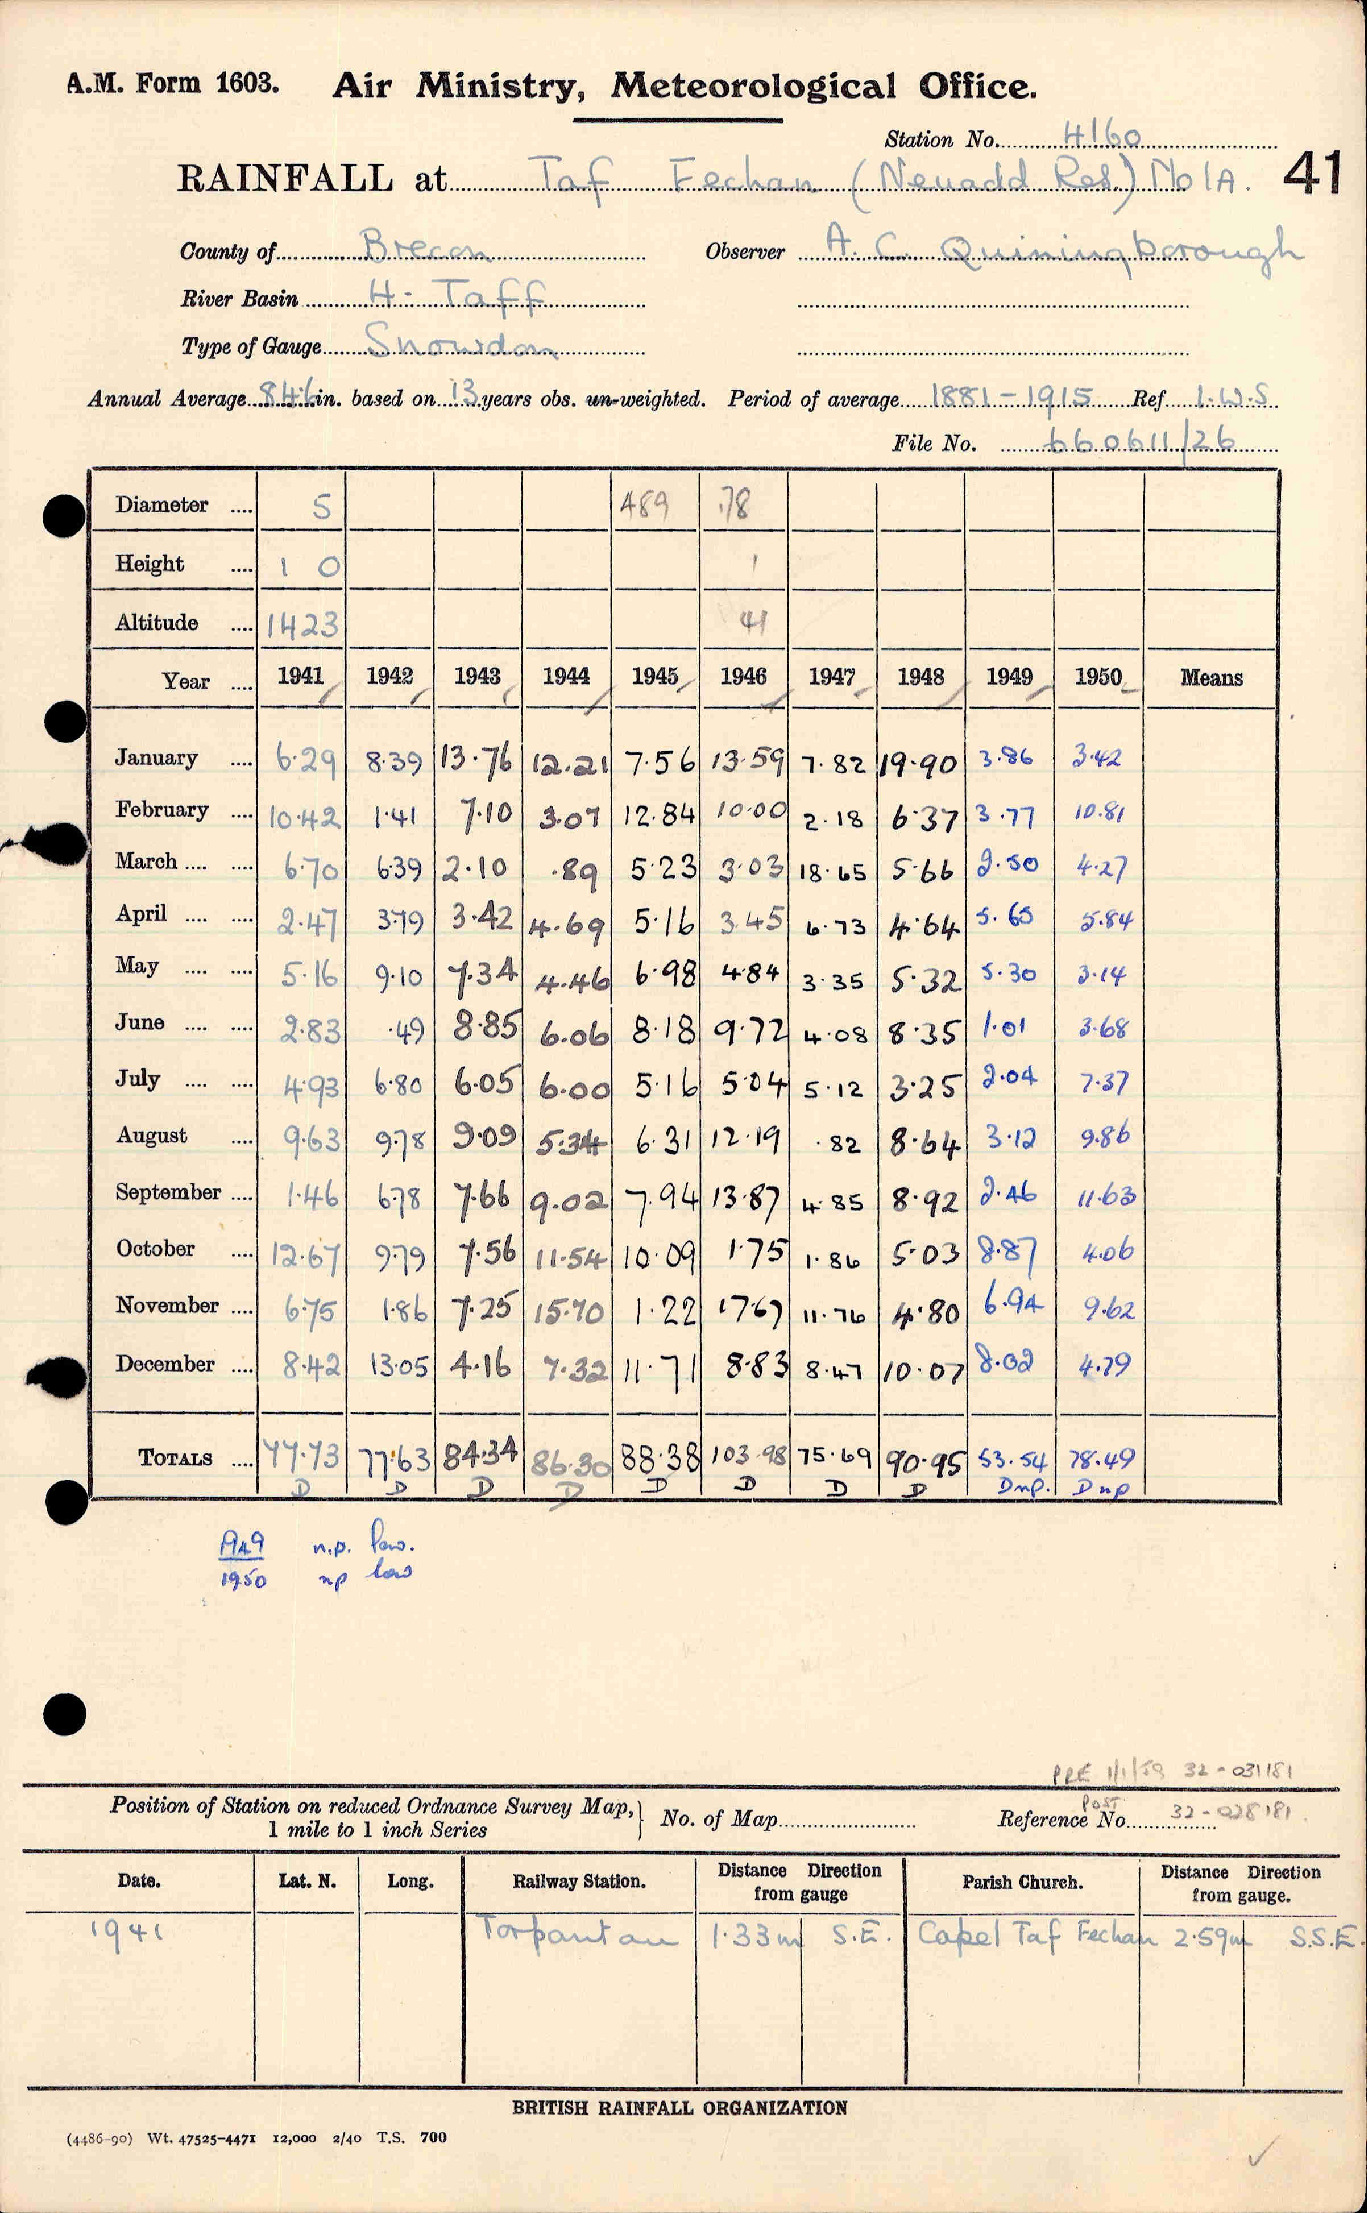 A.M. Form 1603. Air Ministry, Meteorological Office.
Station No. 4160
RAINFALL at Taf Fechan (Neuadd Res.) No 1A. 41
County of Brecon Observer A. C. Quiningborough
River Basin H - Taff
Type of Gauge Snowdon
Annual Average 84.6 in. based on 13 years obs. un-weighted. Period of average 1881-1915 Ref I.W.S
File No. 660611/26
Diameter .... 5 489 .78
Height .... 1 0 1
Altitude .... 1423 41
Year .... 1941 1942 1943 1944 1945 1946 1947 1948 1949 1950 Means
January .... 6.29 8.39 13.76 12.21 7.56 13.59 7.82 19.90 3.86 3.42
February .... 10.42 1.41 7.10 3.07 12.84 10.00 2.18 6.37 3.77 10.81
March .... .... 6.70 6.39 2.10 .89 5.23 3.03 18.65 5.66 2.50 4.27
April .... .... 2.47 3.79 3.42 4.69 5.16 3.45 6.73 4.64 5.65 5.84
May .... .... 5.16 9.10 7.34 4.46 6.98 4.84 3.35 5.32 5.30 3.14
June .... .... 2.83 .49 8.85 6.06 8.18 9.72 4.08 8.35 1.01 3.68
July .... .... 4.93 6.80 6.05 6.00 5.16 5.04 5.12 3.25 2.04 7.37
August .... 9.63 9.78 9.09 5.34 6.31 12.19 .82 8.64 3.12 9.86
September .... 1.46 6.78 7.66 9.02 7.94 13.87 4.85 8.92 2.46 11.63
October .... 12.67 9.79 7.56 11.54 10.09 1.75 1.86 5.03 8.87 4.06
November .... 6.75 1.86 7.25 15.70 1.22 17.67 11.76 4.80 6.94 9.62
December .... 8.42 13.05 4.16 7.32 11.71 8.83 8.47 10.07 8.02 4.79
TOTALS .... 77.73 77.63 84.34 86.30 88.38 103.98 75.69 90.95 53.54 78.49
D D D D D D D D Dnp. Dnp
1949 n.p. low.
1950 np low
PRE 1/1/59 32-031181
Position of Station on reduced Ordnance Survey Map, 1 mile to 1 inch Series } No. of Map Reference No. POST 32-028181.
Date. Lat. N. Long. Railway Station. Distance Direction from gauge Parish Church. Distance Direction from gauge.
1941 Torpantau 1.33m S.E. Capel Taf Fechan 2.59m S.S.E.
BRITISH RAINFALL ORGANIZATION
(4486-90) Wt. 47525-4471 12,000 2/40 T.S. 700